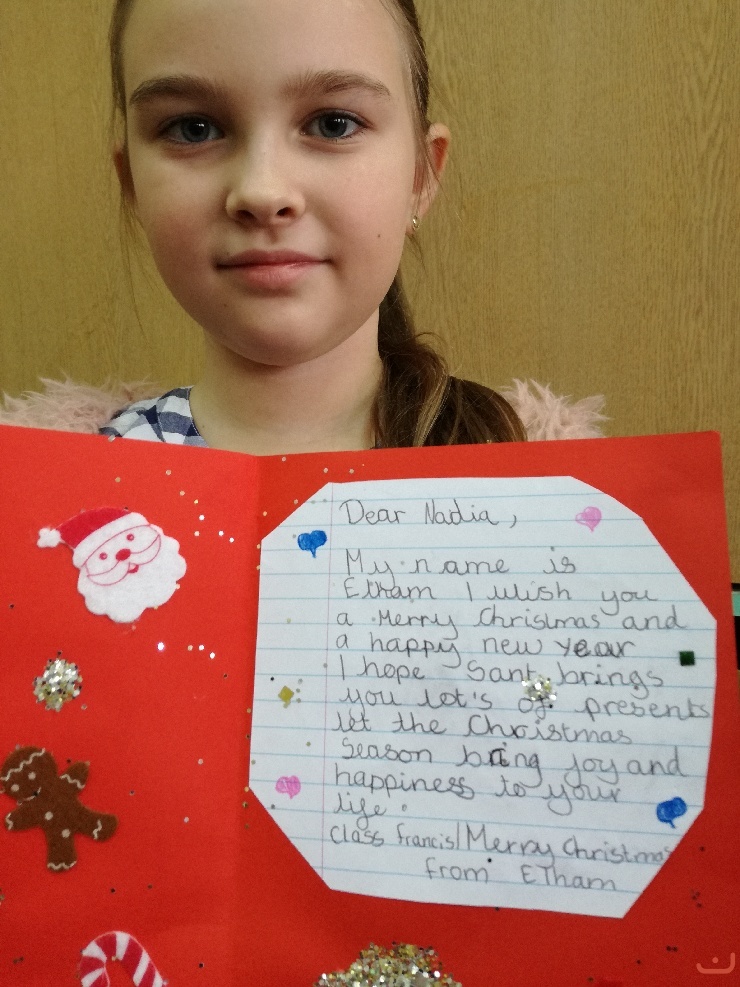 Dear Nadia,
My name is
Etham I wish you
a Merry Christmas and
a happy new year
I hope Sant brings
you lot's of presents
let the Christmas
Season bring joy and
happiness to your
life.
Class francis/Merry Christmas
from ETham